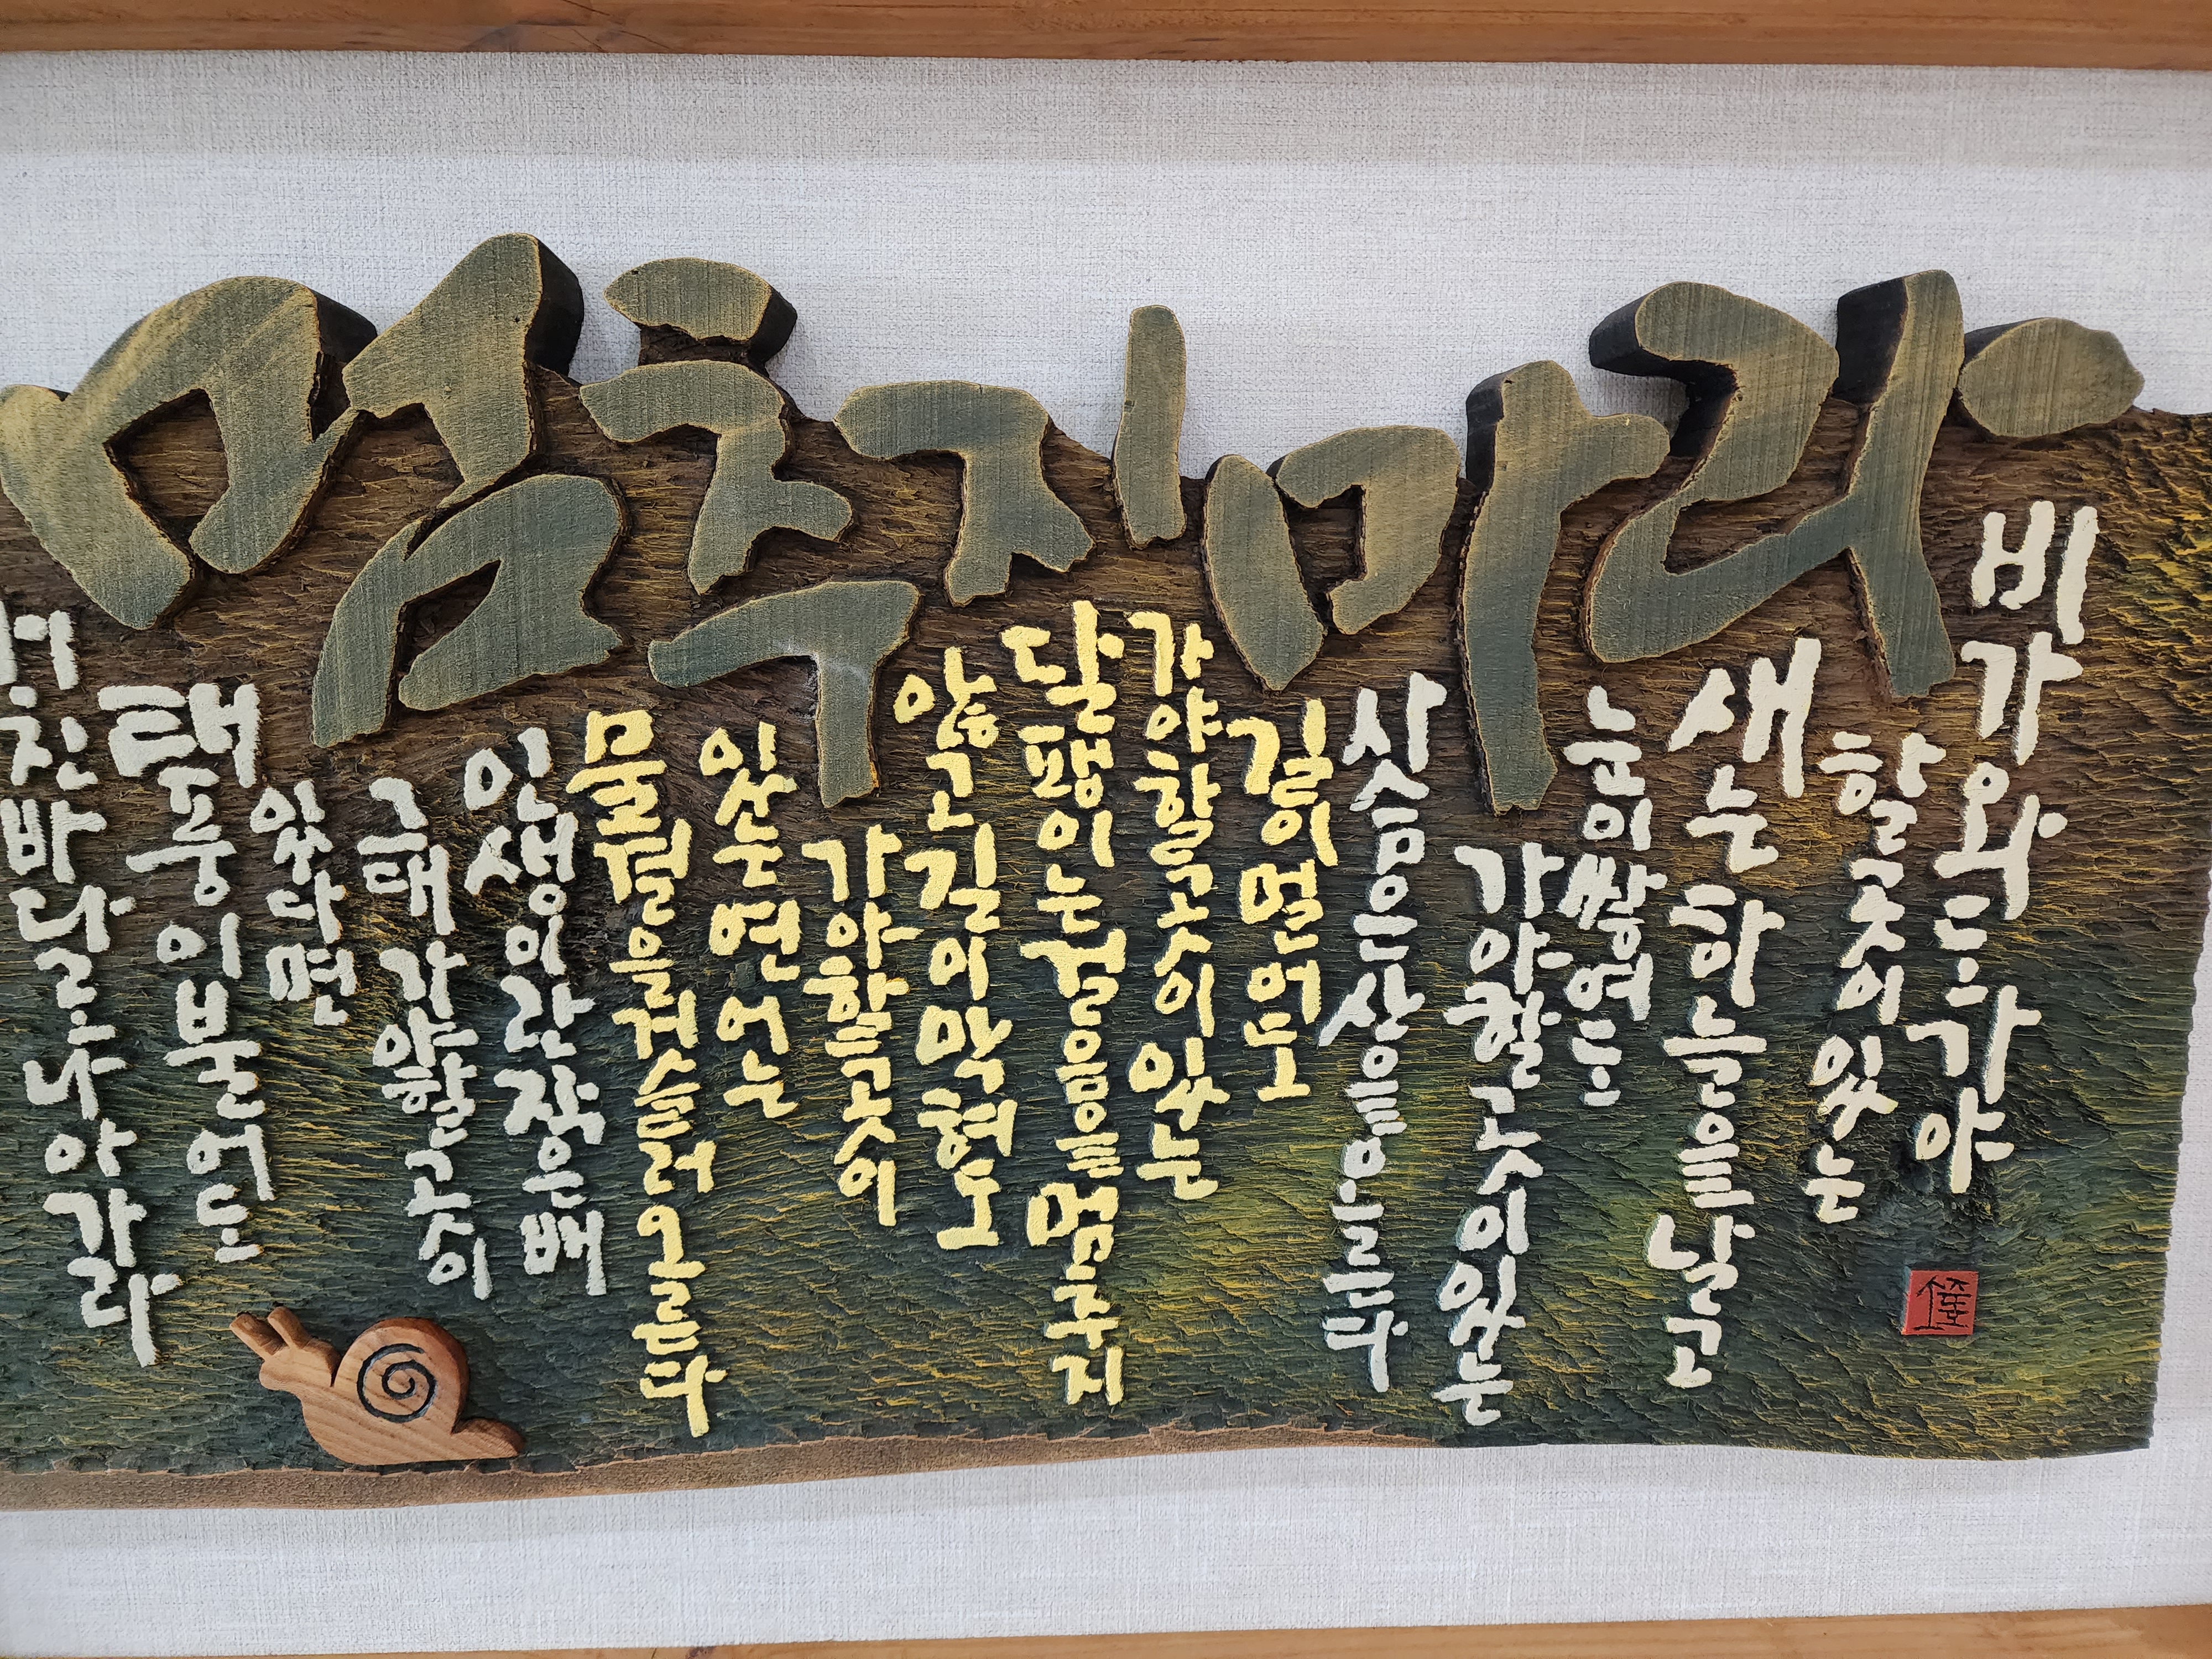 멈추지마라
비가와도가야
할곳이있는
새는하늘을날고
눈이쌓여도
가야할곳이있는
사슴은산을오른다
길이멀어도
가야할곳이있는
달팽이는걸음을멈추지
않고길이막혀도
가야할곳이
있는연어는
물결을거슬러오른다
인생이란작은배
그대가야할곳이
있다면
태풍이불어도
거친바다로나아가라